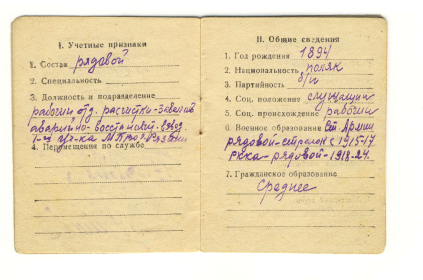 I. Учетные признаки
1. Состав рядовой
2. Специальность
3. Должность и подразделение
рабочий отд. расчистки завалов
аварийно-восстановит. взвод
1-й уч-ка МПВО
4. Перемещения по службе
II. Общие сведения
1. Год рождения 1894
2. Национальность поляк
3. Партийность б/п
4. Соц. положение служащий
5. Соц. происхождение рабочий
6. Военное образование Ст. Армии
рядовой-стрелок с 1915-17.
РККА-рядовой-1918-24.
7. Гражданское образование
Среднее